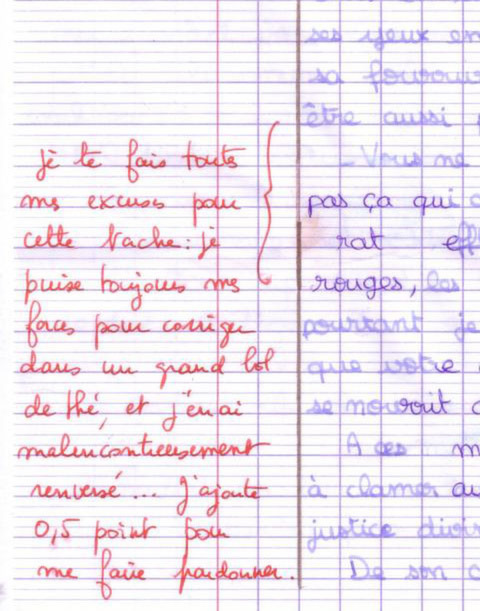 je te fais toutes
mes excuses pour
cette tache : je
puise toujours mes
forces pour corriger
dans un grand bol
de thé, et j'en ai
malencontreusement
renversé... J'ajoute
0,5 point pour
me faire pardonner.
ses yeux en
sa
être aussi
- Vous ne
pas ça qui
rat eff
rouges, les
pourtant je
que votre
se nourrit
A ces m
à clamer au
justice divi
De son